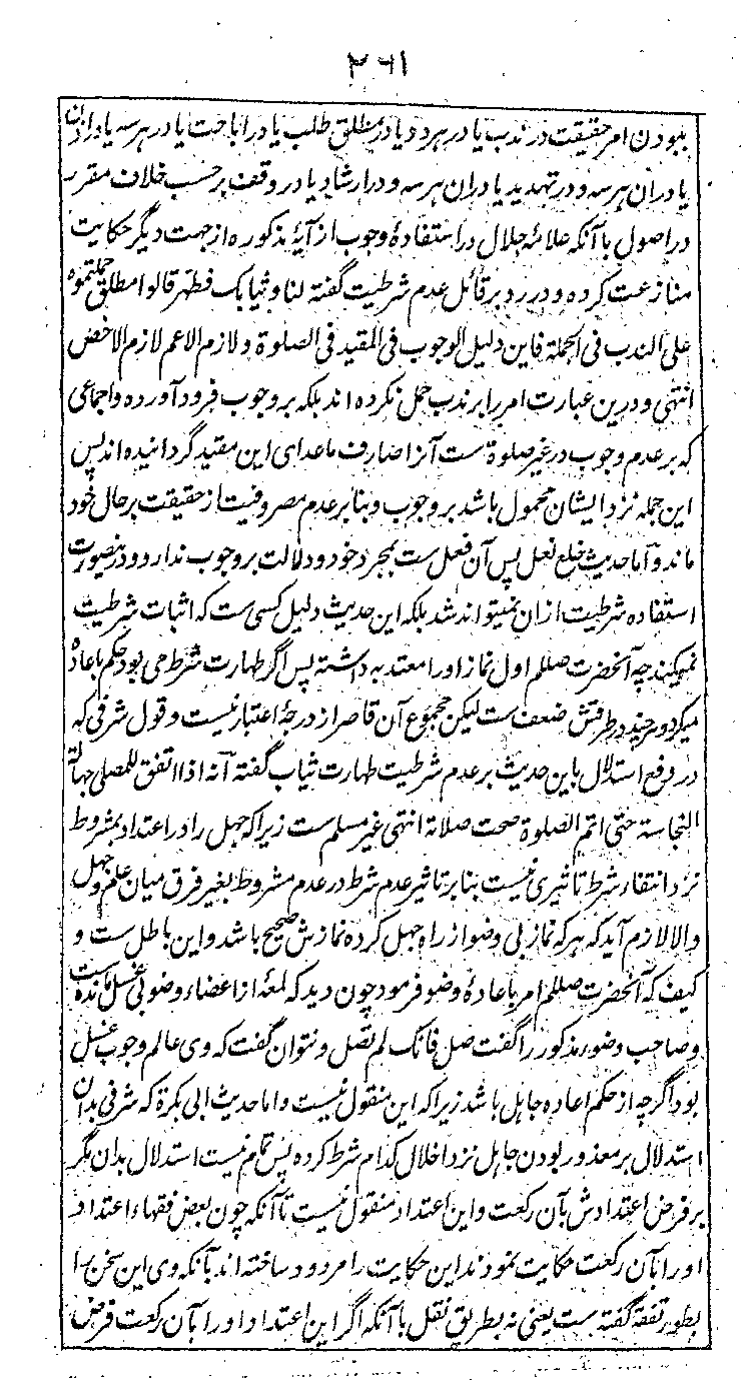 ۲۶۱
ببودن امر حقیقت در ندب یا در هر دو یا در مطلق طلب یا در اباحت یا در هر سه یا در اذن
یا در ان هر سه و در تهدید یا در ان هر سه و در ارشاد یا در وقف بر حسب خلاف مقرر
در اصول با آنکه علامه جلال در استفادهٔ وجوب از آیهٔ مذکوره از جهت دیگر حکایت
منازعت کرده و در رد بر قائل عدم شرطیت گفته لنا وثیابک فطهر قالوا مطلق حملتموه
علی الندب فی الجملة فاین دلیل الوجوب فی المقید فی الصلوة ولازم الاعم لازم الاخص
انتهی و درین عبارت امر را بر ندب حمل نکرده اند بلکه بر وجوب فرود آورده و اجماعی
که بر عدم وجوب در غیر صلوة ست آنرا صارف ماعدای این مقید گردانیده اند پس
این جمله نزد ایشان محمول باشد بر وجوب و بنا بر عدم مصروفیت از حقیقت بر حال خود
ماند و اما حدیث خلع نعل پس آن فعل ست بمجرد خود و دلالت بر وجوب ندارد و درینصورت
استفاده شرطیت ازان نمیتواند شد بلکه این حدیث دلیل کسی ست که اثبات شرطیت
نمیکند چه آنحضرت صللم اول نماز او را معتد به داشته پس اگر طهارت شرط می بود حکم باعاده
میکرد و هرچند در طرقش ضعف ست لیکن مجموع آن قاصر از درجهٔ اعتبار نیست و قول شرفی که
در دفع استدلال باین حدیث بر عدم شرطیت طهارت ثیاب گفته آنه اذا اتفق للمصلی جهالة
النجاسة حتی اتم الصلوة صحت صلاتة انتهی غیر مسلم ست زیرا که جهل را در اعتداد بمشروط
نزد انتفاء شرط تاثیری نیست بنا بر تاثیر عدم شرط در عدم مشروط بغیر فرق میان علم و جهل
والا لازم آید که هر که نماز بی وضو از راه جهل کرده نمازش صحیح باشد و این باطل ست و
کیف که آنحضرت صللم امر باعادهٔ وضو فرمود چون دید که لمعهٔ از اعضاء وضو بی غسل مانده ست
و صاحب وضوء مذکور را گفت صل فانک لم تصل و نتوان گفت که وی عالم وجوب غسل
بود اگرچه از حکم اعاده جاهل باشد زیرا که این منقول نیست و اما حدیث ابی بکرة که شرفی بدان
استدلال بر معذور بودن جاهل نزد اخلال کدام شرط کرده پس تمام نیست استدلال بدان مگر
بر فرض اعتدادش بآن رکعت و این اعتداد منقول نیست تا آنکه چون بعض فقهاء اعتداد
او را بآن رکعت حکایت نمودند این حکایت را مردود ساخته اند بآنکه وی این سخن را
بطور تفقه گفته ست یعنی نه بطریق نقل با آنکه اگر این اعتداد او را بآن رکعت فرض